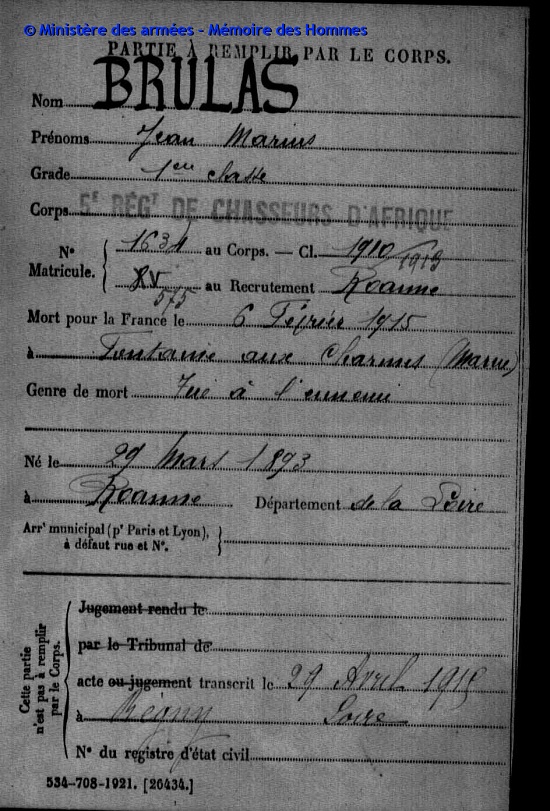 © Ministère des armées - Mémoire des Hommes
PARTIE À REMPLIR PAR LE CORPS.
Nom BRULAS
Prénoms Jean Marius
Grade 1ère classe
Corps 5e RÉGt DE CHASSEURS D'AFRIQUE
N° Matricule. 1634 au Corps. — Cl. 1910 / 1913
575 au Recrutement Roanne
Mort pour la France le 6 Février 1915
à Fontaine aux Charmes (Marne)
Genre de mort Tué à l'ennemi
Né le 29 Mars 1893
à Roanne Département de la Loire
Arrt municipal (pr Paris et Lyon),
à défaut rue et N°.
Cette partie n'est pas à remplir par le Corps.
Jugement rendu le
par le Tribunal de
acte ou jugement transcrit le 29 Avril 1915
à Régny Loire
N° du registre d'état civil
534-708-1921. [26434.]